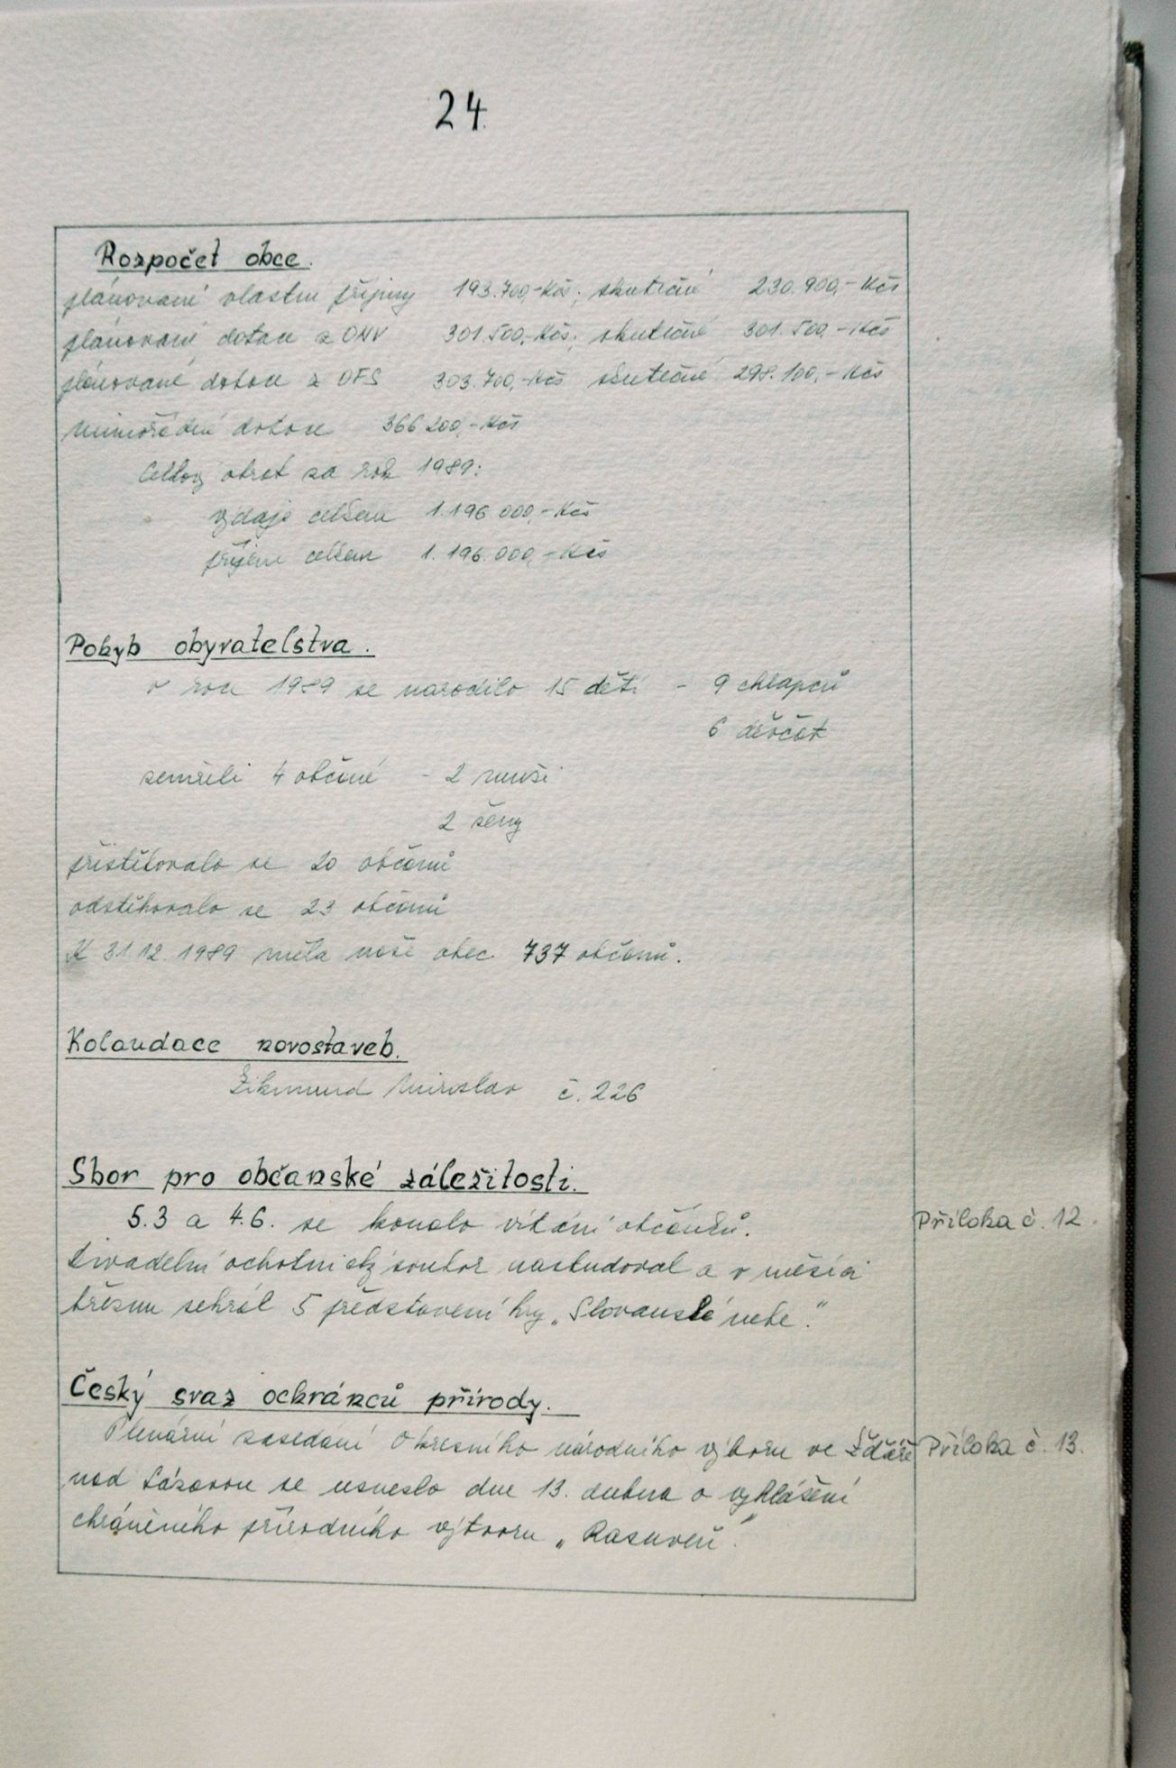 24.
Rozpočet obce.
plánované vlastní příjmy 193.700,-Kčs, skutečné 230.900,-Kčs
plánované dotace z ONV 301.500,-Kčs, skutečné 301.500,-Kčs
plánované dotace z OFS 303.700,-Kčs skutečné 298.100,-Kčs
mimořádné dotace 366 200,-Kčs
Celkový obrat za rok 1989:
výdaje celkem 1.196 000,-Kčs
příjem celkem 1.196.000,-Kčs
Pohyb obyvatelstva.
v roce 1989 se narodilo 15 dětí - 9 chlapců
6 děvčat
zemřeli 4 občané - 2 muži
2 ženy
přistěhovalo se 20 občanů
odstěhovalo se 23 občanů
K 31.12.1989 měla naše obec 737 občanů.
Kolaudace novostaveb.
Zikmund Miroslav č. 226
Sbor pro občanské záležitosti.
5.3 a 4.6. se konalo vítání občánků. Příloha č. 12.
Divadelní ochotnický soubor nastudoval a v měsíci
březnu sehrál 5 představení hry „Slovanské nebe."
Český svaz ochránců přírody.
Plenární zasedání Okresního národního výboru ve Žďáře Příloha č. 13.
nad Sázavou se usneslo dne 13. dubna o vyhlášení
chráněného přírodního výtvoru „Rasuveň".